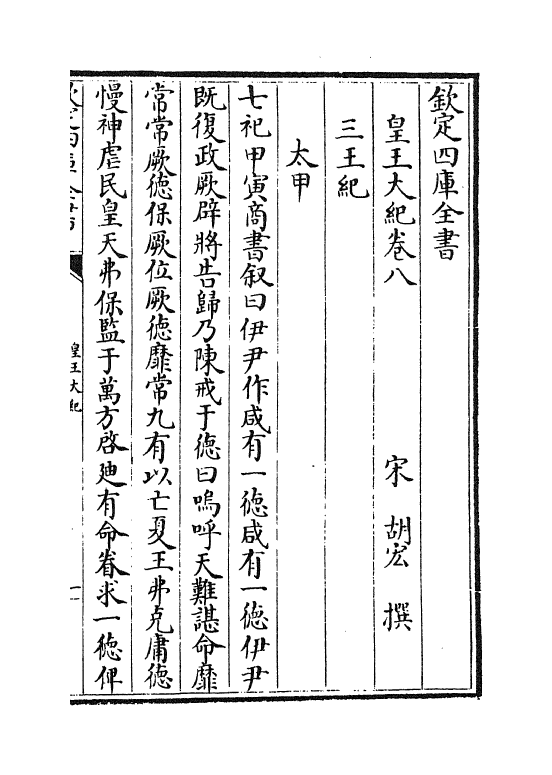 欽定四庫全書
皇王大紀卷八
宋 胡宏 撰
三王紀
太甲
七祀甲寅商書叙曰伊尹作咸有一德咸有一德伊尹
既復政厥辟將告歸乃陳戒于德曰嗚呼天難諶命靡
常常厥德保厥位厥德靡常九有以亡夏王弗克庸德
慢神虐民皇天弗保監于萬方啓廸有命眷求一德俾
皇王大紀